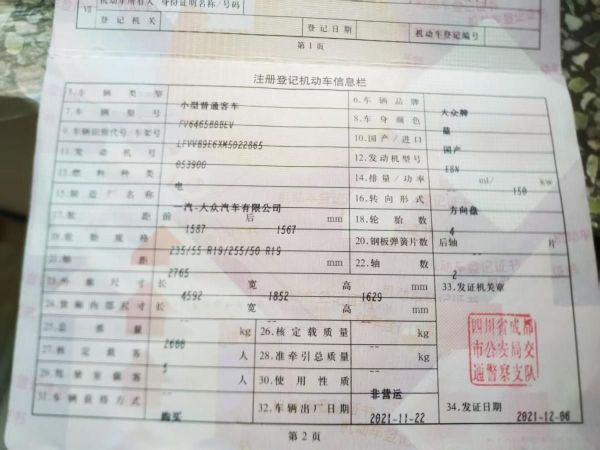 机动车所有人/身份证明名称/号码
Ⅶ
登记机关 登记日期 机动车登记编号
第1页
注册登记机动车信息栏
5.车辆类型 小型普通客车 6.车辆品牌 大众牌
7.车辆型号 FV6465BBBEV 8.车身颜色 蓝
9.车辆识别代号/车架号 LFVVB9E6XM5022865 10.国产/进口 国产
11.发动机号 053900 12.发动机型号 EBN
13.燃料种类 电 14.排量/功率 ml/ 150 kw
15.制造厂名称 一汽-大众汽车有限公司 16.转向形式 方向盘
17.轮距 前 1587 后 1567 mm 18.轮胎数 4
19.轮胎规格 235/55 R19/255/50 R19 20.钢板弹簧片数 后轴 片
21.轴距 2765 mm 22.轴数 2
23.外廓尺寸 长 4592 宽 1852 高 1629 mm 33.发证机关章
24.货厢内部尺寸 长 宽 高 mm
25.总质量 kg 26.核定载质量 -- kg
27.核定载客 5 人 28.准牵引总质量 -- kg
29.驾驶室载客 -- 人 30.使用性质 非营运
31.车辆获得方式 购买 32.车辆出厂日期 2021-11-22 34.发证日期 2021-12-06
四川省成都
市公安局交
通警察支队
第2页